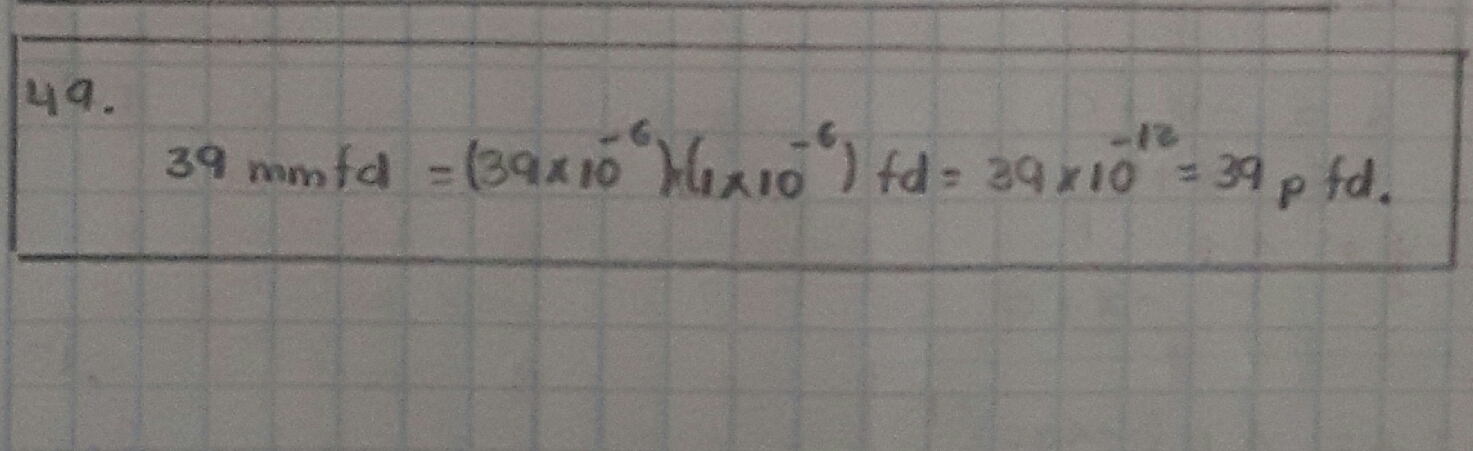 49.
39 mmfd = (39x10⁻⁶)(1x10⁻⁶) fd = 39x10⁻¹² = 39 p fd.